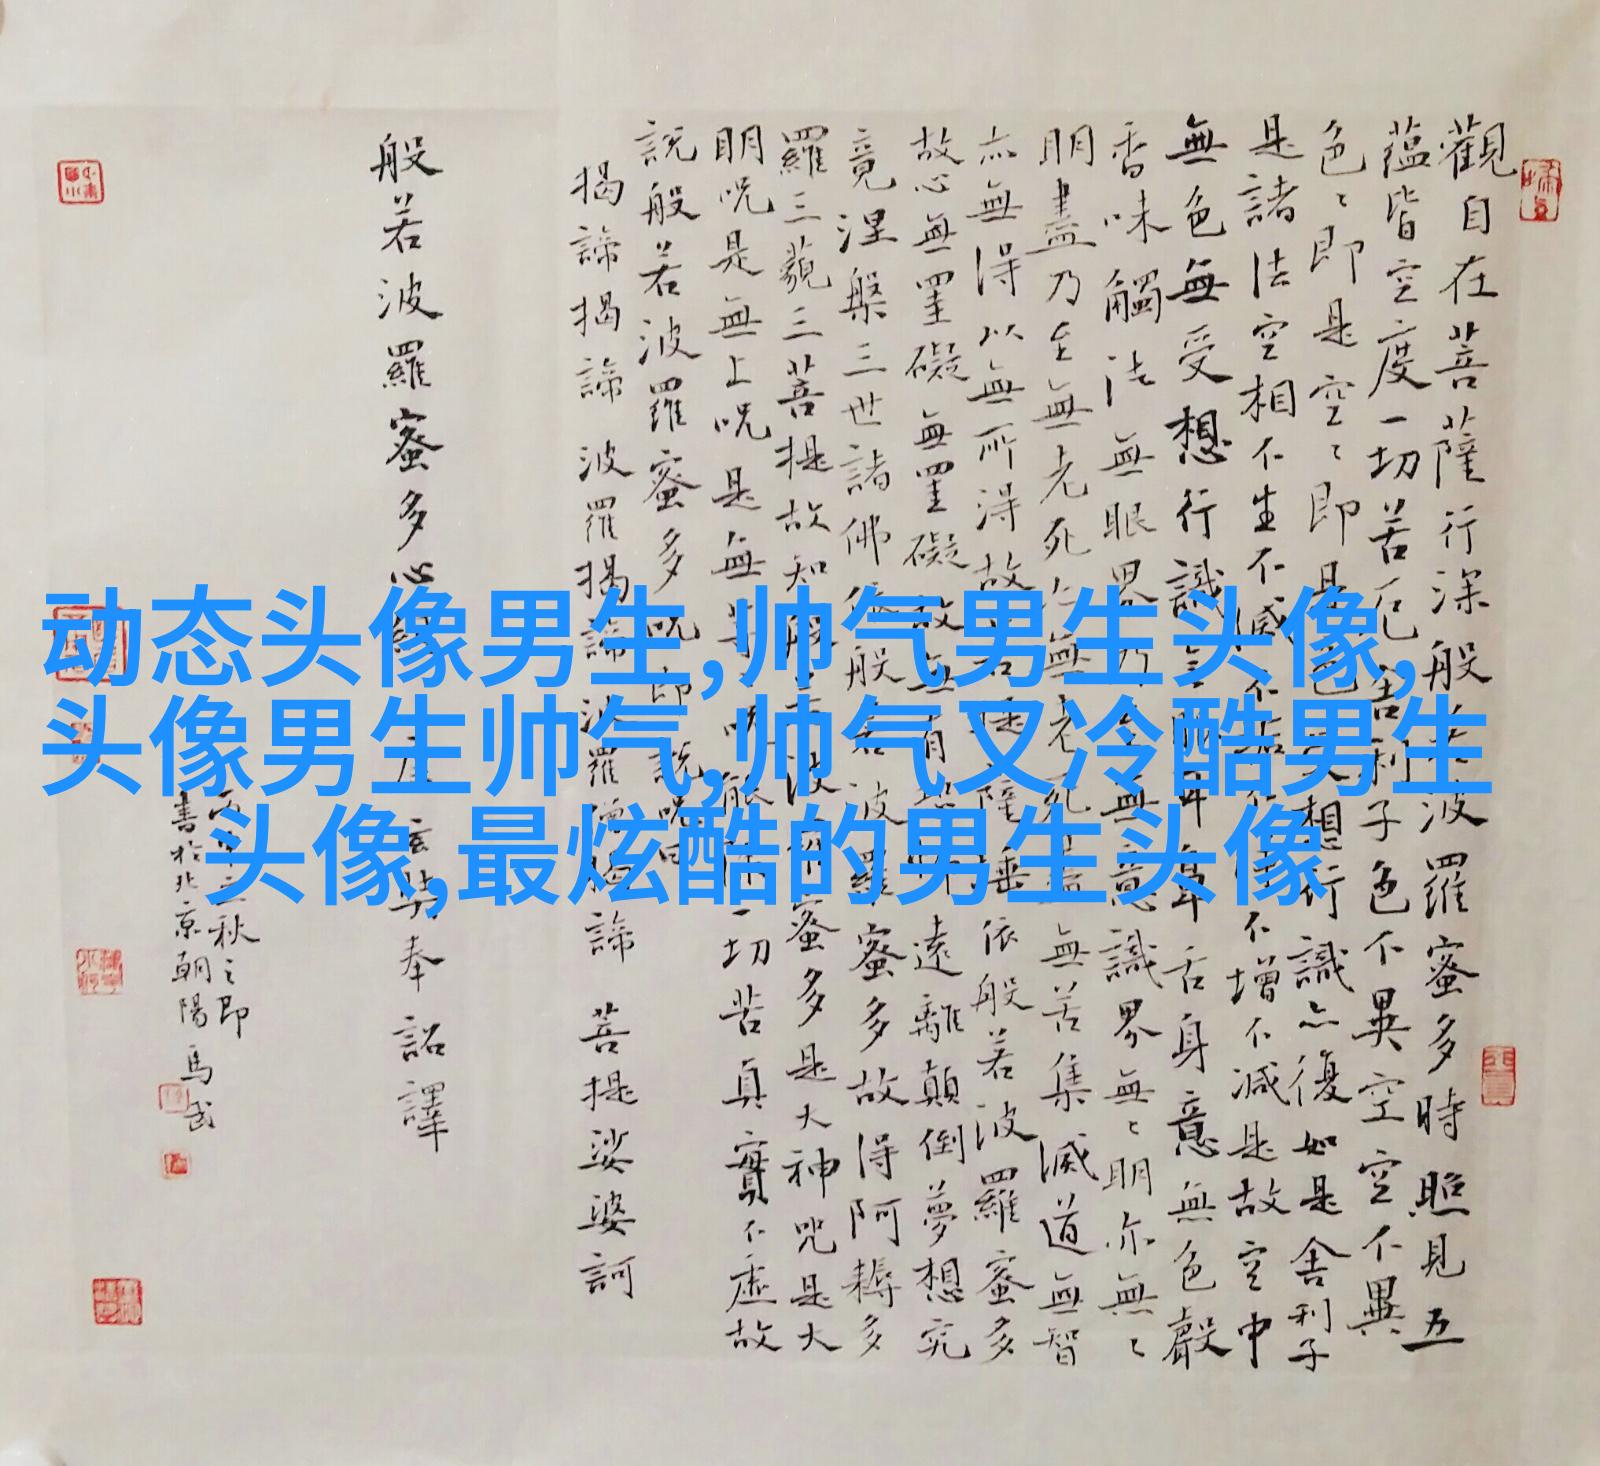 觀自在菩薩行深般若波羅蜜多時照見五
蘊皆空度一切苦厄舍利子色不異空空不異
色〻即是空〻即是色受想行識亦復如是舍利子
是諸法空相不生不滅不垢不淨不增不減是故空中
無色無受想行識無眼耳鼻舌身意無色聲
香味觸法無眼界乃至無意識界無〻明亦無〻
明盡乃至無老死亦無老死盡無苦集滅道無智
亦無得以無所得故菩提薩埵依般若波羅蜜多
故心無罣礙無罣礙故無有恐怖遠離顛倒夢想究
竟涅槃三世諸佛依般若波羅蜜多故得阿耨多
羅三藐三菩提故知般若波羅蜜多是大神咒是大
明呪是無上呪是無等等呪能除一切苦真實不虛故
說般若波羅蜜多呪即說呪曰
揭諦揭諦波羅揭諦波羅僧揭諦菩提娑婆訶
般若波羅蜜多心經唐玄奘奉詔譯
秋之即
書於北京朝陽馬武
动态头像男生,帅气男生头像,
头像男生帅气,帅气又冷酷男生
头像,最炫酷的男生头像